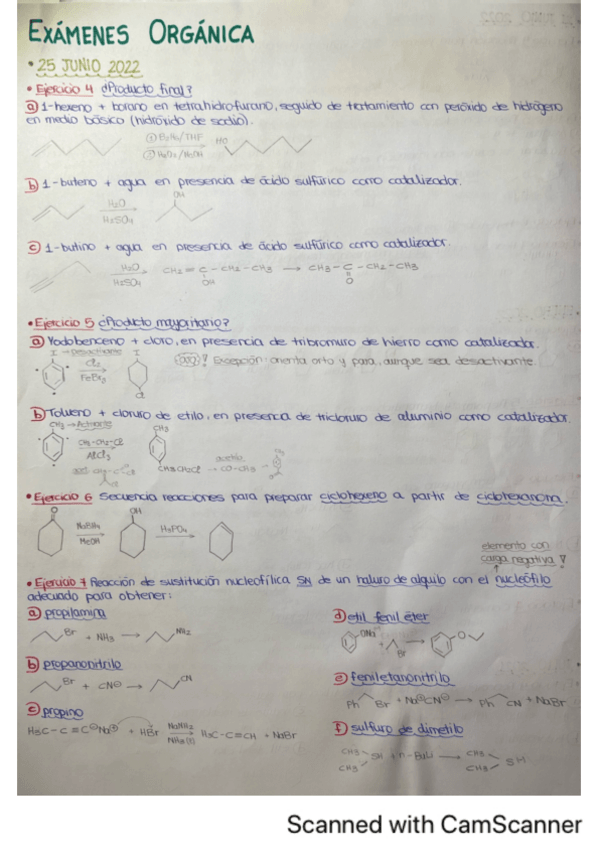 EXÁMENES ORGÁNICA
• 25 JUNIO 2022
• Ejercicio 4 ¿Producto final?
a) 1-hexeno + borano en tetrahidrofurano, seguido de tratamiento con peróxido de hidrógeno
en medio básico (hidróxido de sodio).
① B2H6/THF HO
② H2O2/NaOH
b) 1-buteno + agua en presencia de ácido sulfúrico como catalizador.
H2O OH
H2SO4
c) 1-butino + agua en presencia de ácido sulfúrico como catalizador.
H2O CH2 = C - CH2 - CH3 → CH3 - C - CH2 - CH3
H2SO4 OH O
• Ejercicio 5 ¿Producto mayoritario?
a) Yodobenceno + cloro, en presencia de tribromuro de hierro como catalizador.
I → Desactivante Cl2 I ! Excepción: orienta orto y para, aunque sea desactivante.
FeBr3 Cl
b) Tolueno + cloruro de etilo, en presencia de tricloruro de aluminio como catalizador.
CH3 → Activante CH3
CH3-CH2-Cl
AlCl3 CH3CH2Cl → CO-CH3
• Ejercicio 6 Secuencia reacciones para preparar ciclohexeno a partir de ciclohexanona.
O NaBH4 OH H3PO4
MeOH
elemento con
carga negativa !
• Ejercicio 7 Reacción de sustitución nucleofílica SN de un haluro de alquilo con el nucleófilo
adecuado para obtener:
a) propilamina
Br + NH3 → NH2
b) propanonitrilo
Br + CN⊖ → CN
c) propino
H3C-C≡C⊖Na⊕ + HBr NaNH2 H3C-C≡CH + NaBr
NH3(l)
d) etil fenil éter
ONa + Br → O
e) feniletanonitrilo
Ph Br + Na⊕CN⊖ → Ph CN + NaBr
f) sulfuro de dimetilo
CH3 SH + n-BuLi → CH3
CH3 CH3
Scanned with CamScanner